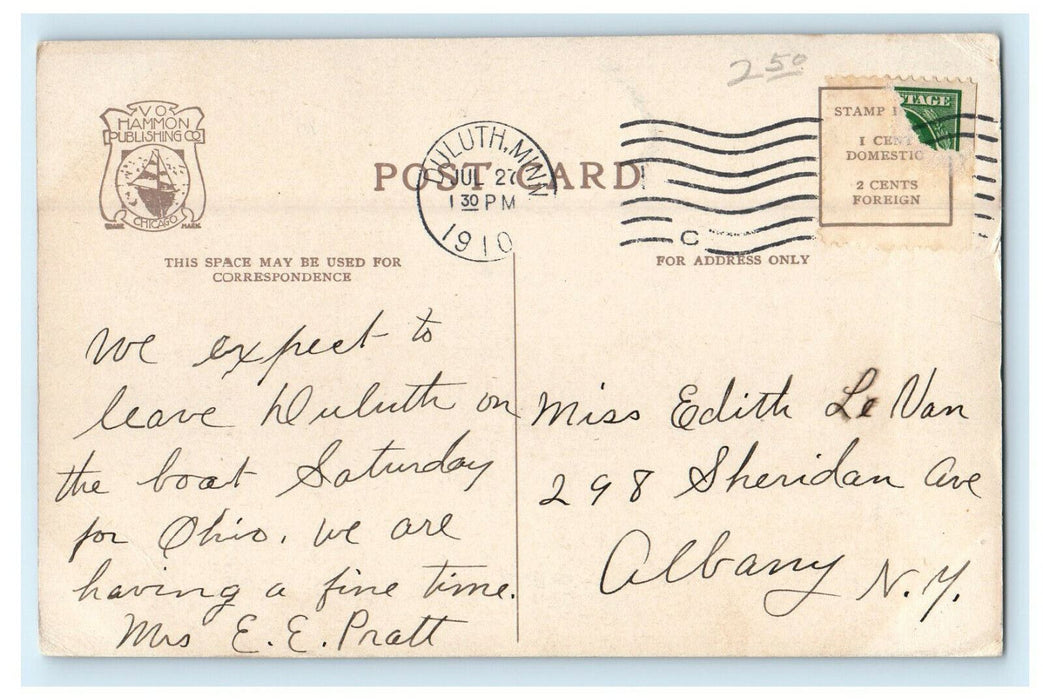 2 50
VO
HAMMON
PUBLISHING CO
CHICAGO
TRADE MARK
POST CARD
DULUTH, MINN
JUL 27
1 30 PM
1910
C
STAGE
STAMP
1 CENT
DOMESTIC
2 CENTS
FOREIGN
THIS SPACE MAY BE USED FOR
CORRESPONDENCE
FOR ADDRESS ONLY
We expect to
leave Duluth on
the boat Saturday
for Ohio. We are
having a fine time.
Mrs E. E. Pratt
Miss Edith Le Van
298 Sheridan Ave
Albany N.Y.